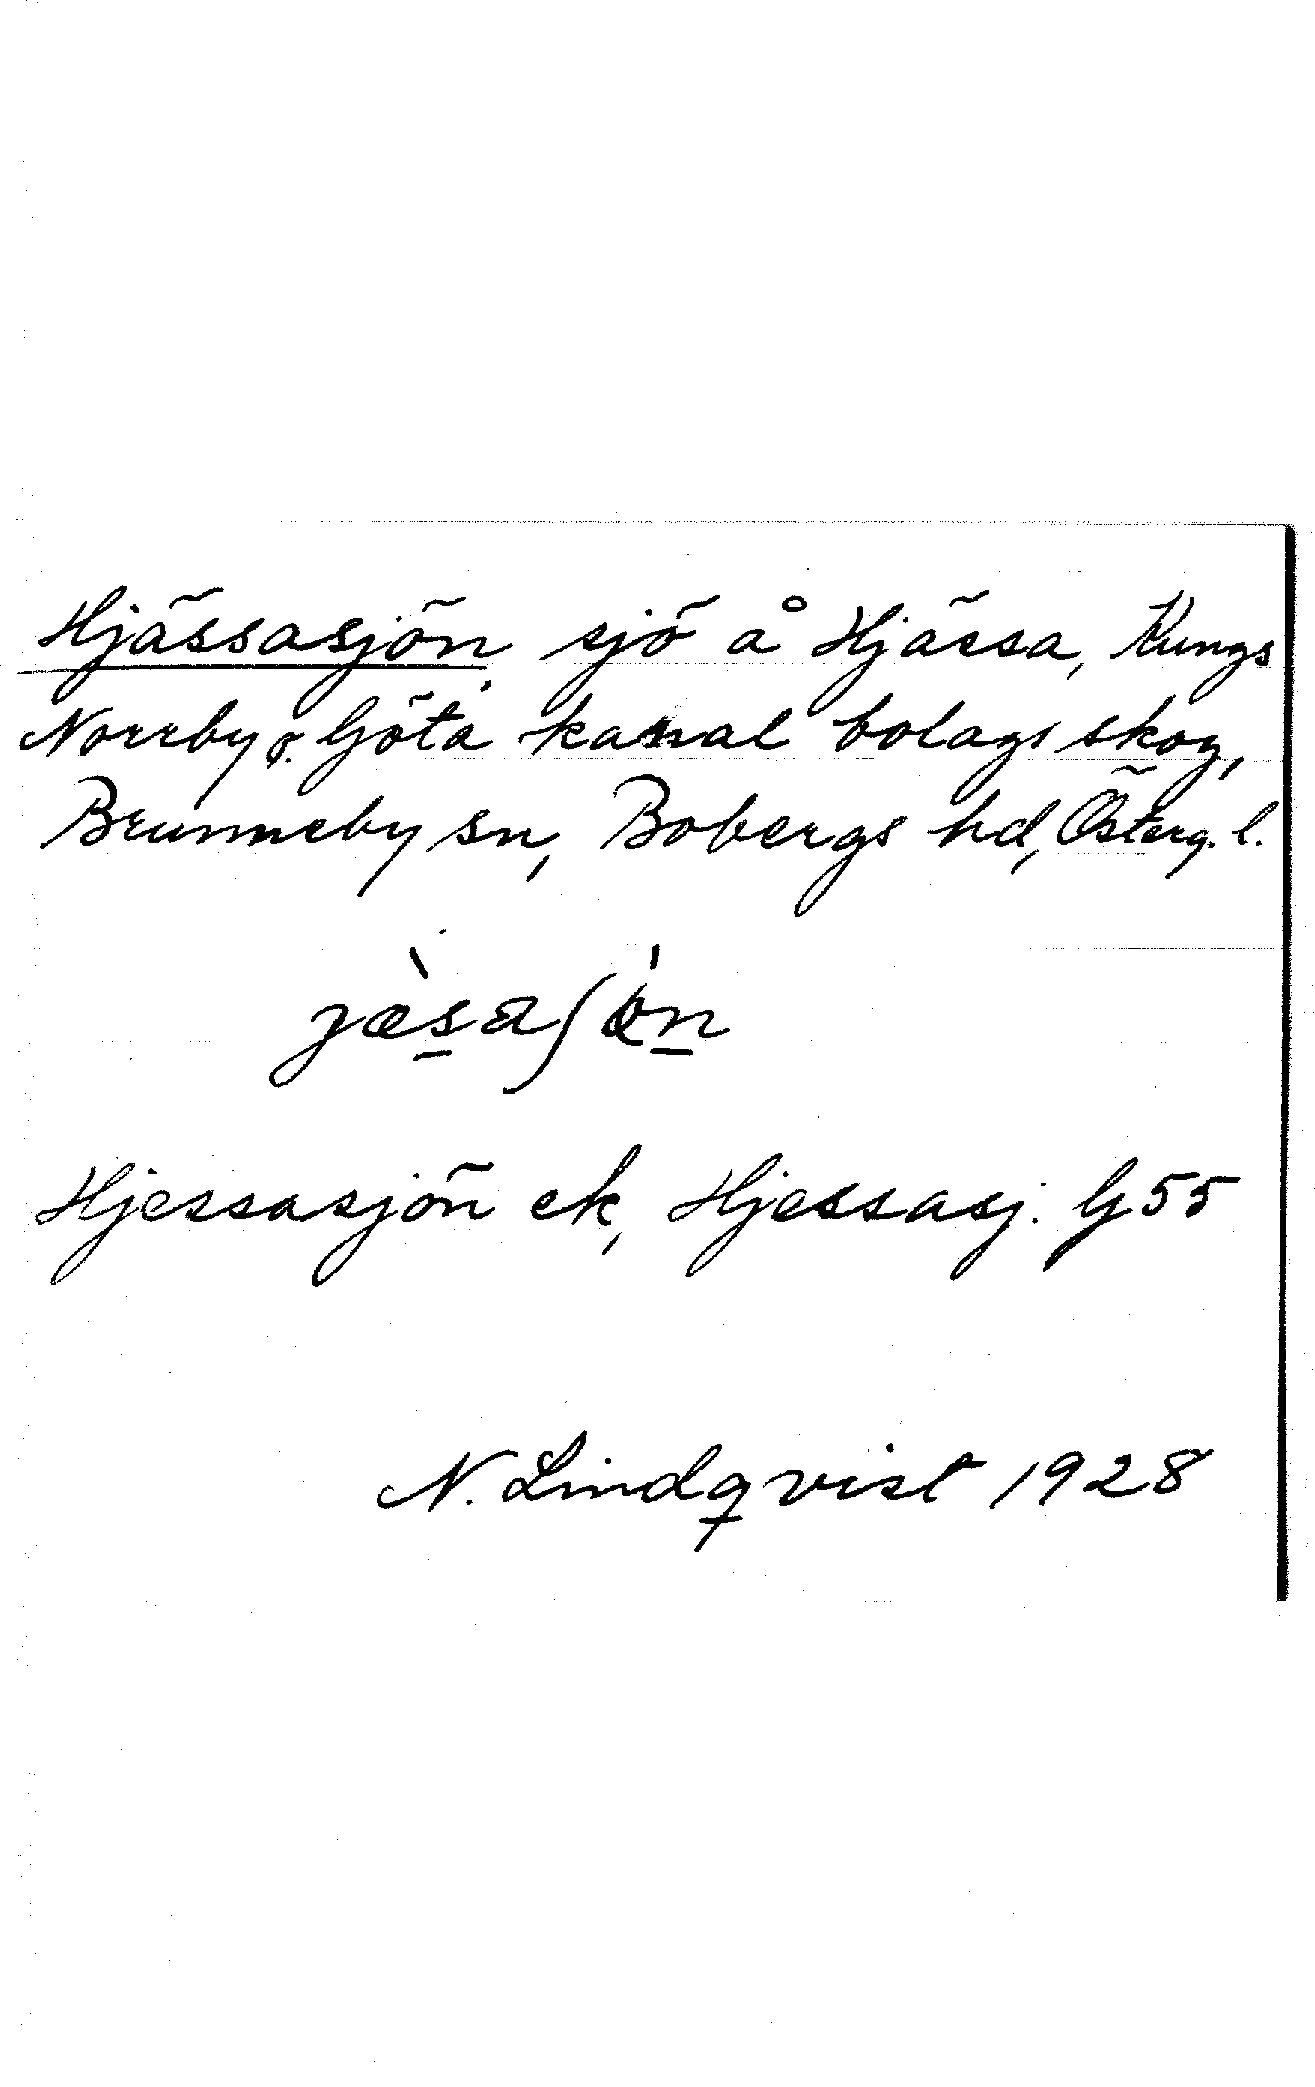 Hjässasjön, sjö å Hjässa, Kungs
Norrby o. Göta kanal bolags skog,
Brunneby sn, Bobergs hd, Österg. l.
jæ̀saʃön
Hjessasjön ek, Hjessasj. G 55
N. Lindqvist 1928